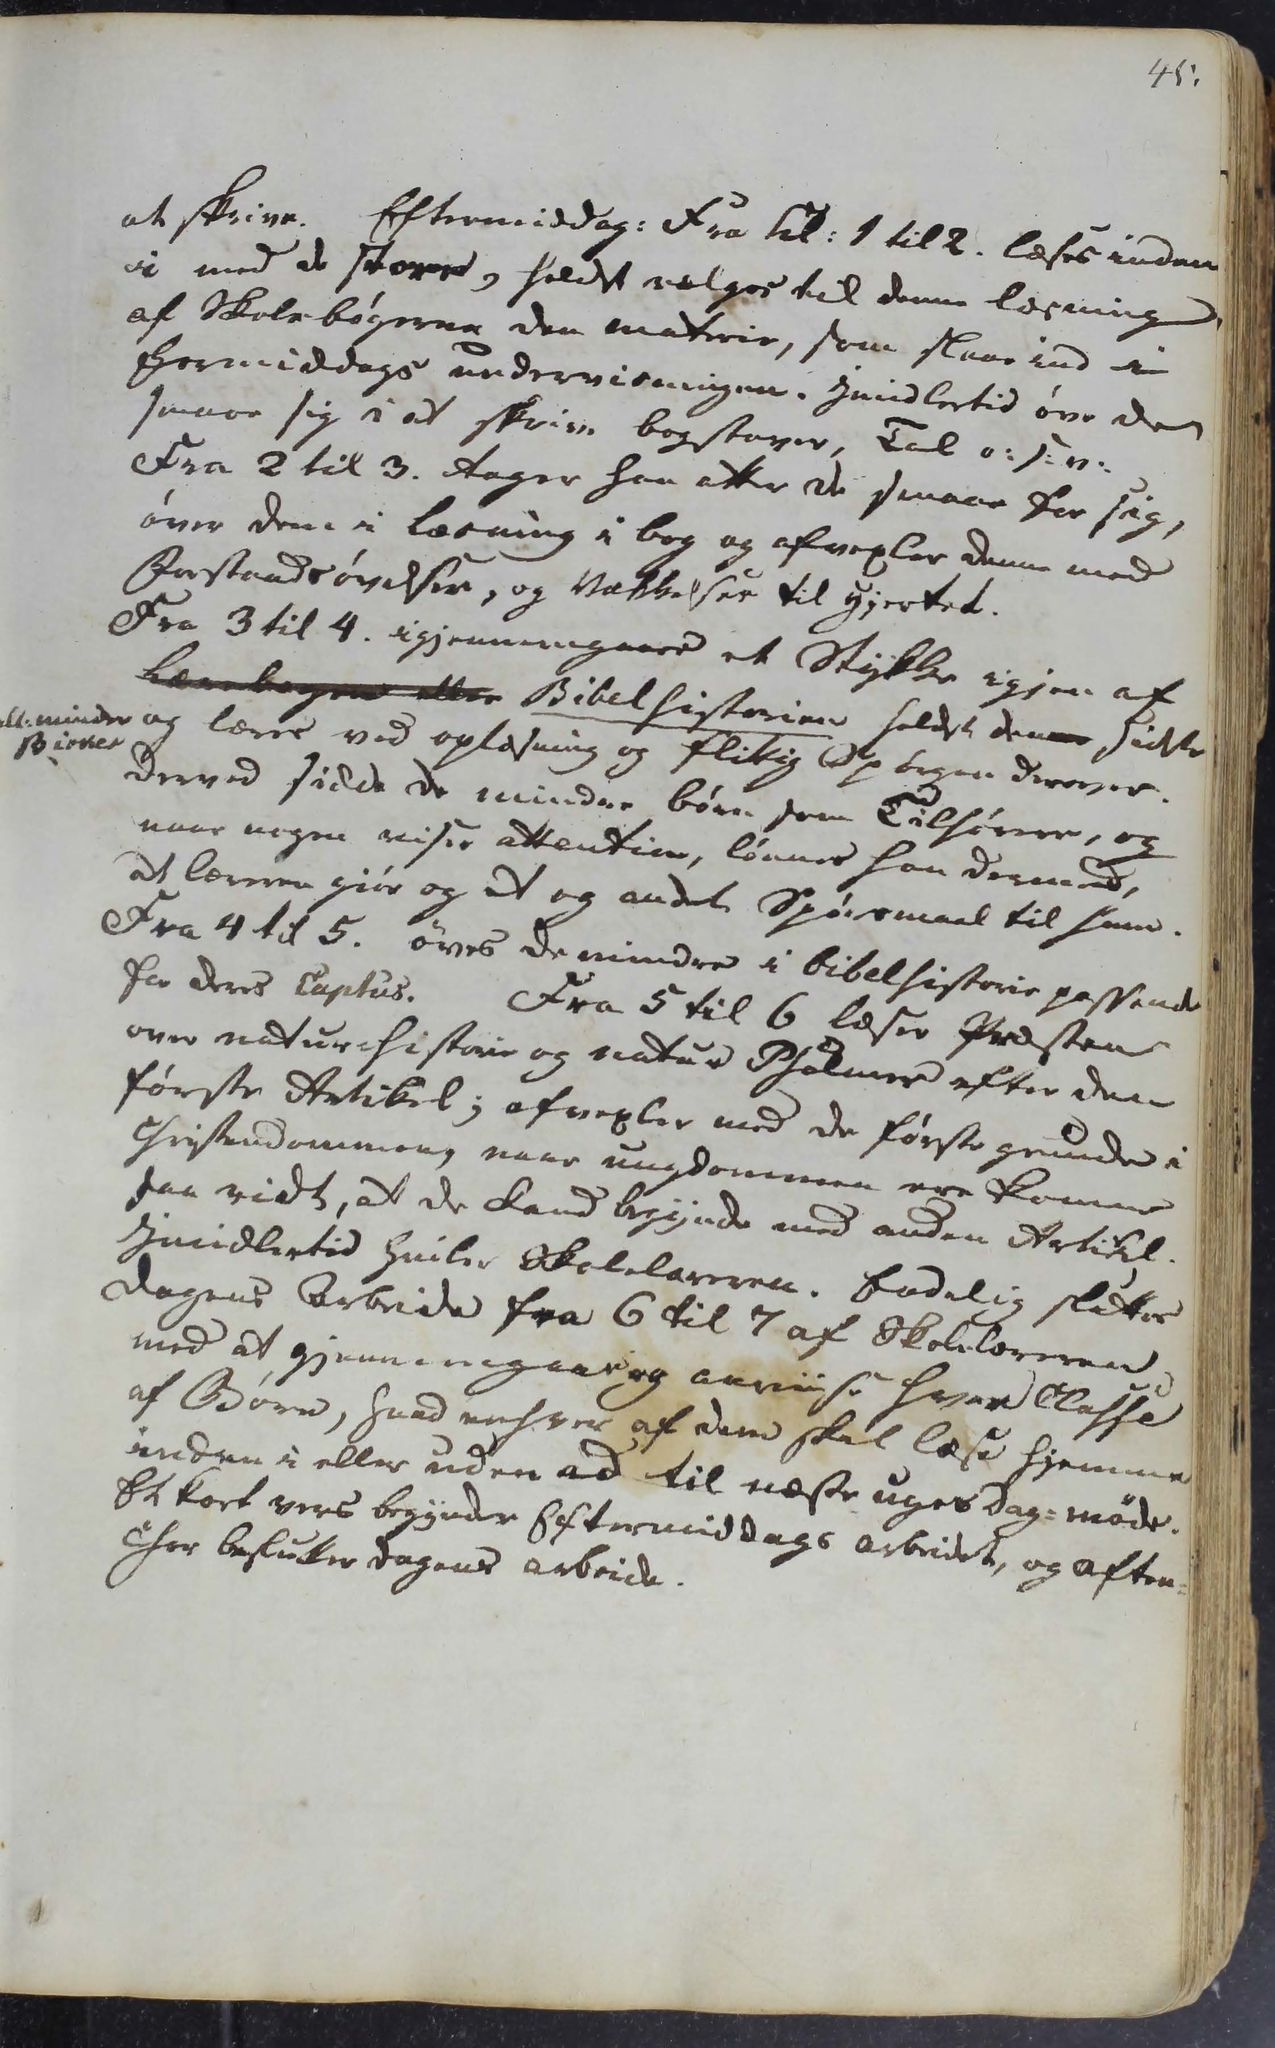 45.
at skrive. Eftermiddag: Fra Kl: 1 til 2. læses inden
i med de større, heldst velges til denne læsning
af Skolebøgerne den materie, som slaar ind i
formiddags undervisningen. Jmidlertid øve de
smaae sig i at skrive bogstaver, Tal o: s: v:
Fra 2 til 3. tager han atter de smaae for sig,
øver dem i læsning i bog og afvexler denne med
Forstandsøvelser, og Vækkelser til Hjertet.
Fra 3 til 4. igjennemgaaes et Stykke igjen af
Lærebogen eller Bibelhistorien heldst denne sidste
og læres ved oplæsning og flitig Spørgen derover.
all: minder
Derved sidde de mindre børn som Tilhørere, og
naar nogen viser attention, lønnes han dermed,
at læreren giør og et og andet Spørsmaal til ham.
Fra 4 til 5. øves de mindre i bibelhistorie passende
for deres Captus. Fra 5 til 6 læser Præsten
over naturhistorie og natur Psalmer efter den
første Artikel; afvexler med de første grunde i
Christendommen, naar ungdommen ere komne
saa vidt, at de kand begynde med anden Artikel.
Jmidlertid hviler Skolelæreren. Endelig sluttes
dagens Arbeide fra 6 til 7 af Skolelæreren
med at gjennemgaae og anviise hver Classe
af Børn, hvad enhver af dem skal læse hjemme
inden i eller uden ad til næste uges dag-møde.
Et kort vers begynder Eftermiddags arbeidet, og aften-
Chor beslutter dagens arbeide.